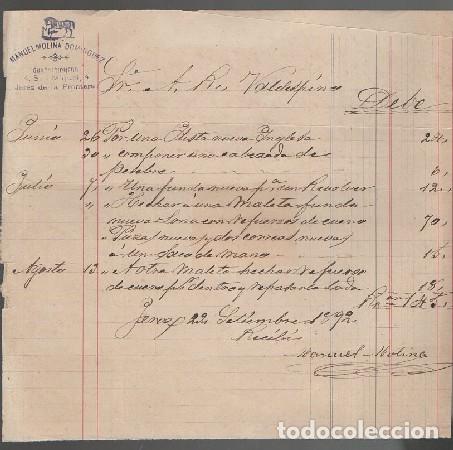 MANUEL MOLINA DOMINGUEZ
GUARNICIONERO
Jerez de la Frontera
Sr. A. R. Valdespino
Debe
Junio 26 Por una Cesta nueva Inglesa 24,
30 " componer una cabezada de
pesebre 6,
Julio 7 " Una funda nueva pª un Revolver 12,
" " Hechar a una Maleta funda
nueva Lona con refuerzos de cuero 70,
" Puas nuevas y dos correas nuevas
a un Saco de mano 15,
Agosto 13 " A otra Maleta hechar refuerzo
de cuero por dentro y repasarla toda 18,
Rvon 145,
Jerez 22 Setiembre 1892
Recibí
Manuel Molina
todocoleccion.net